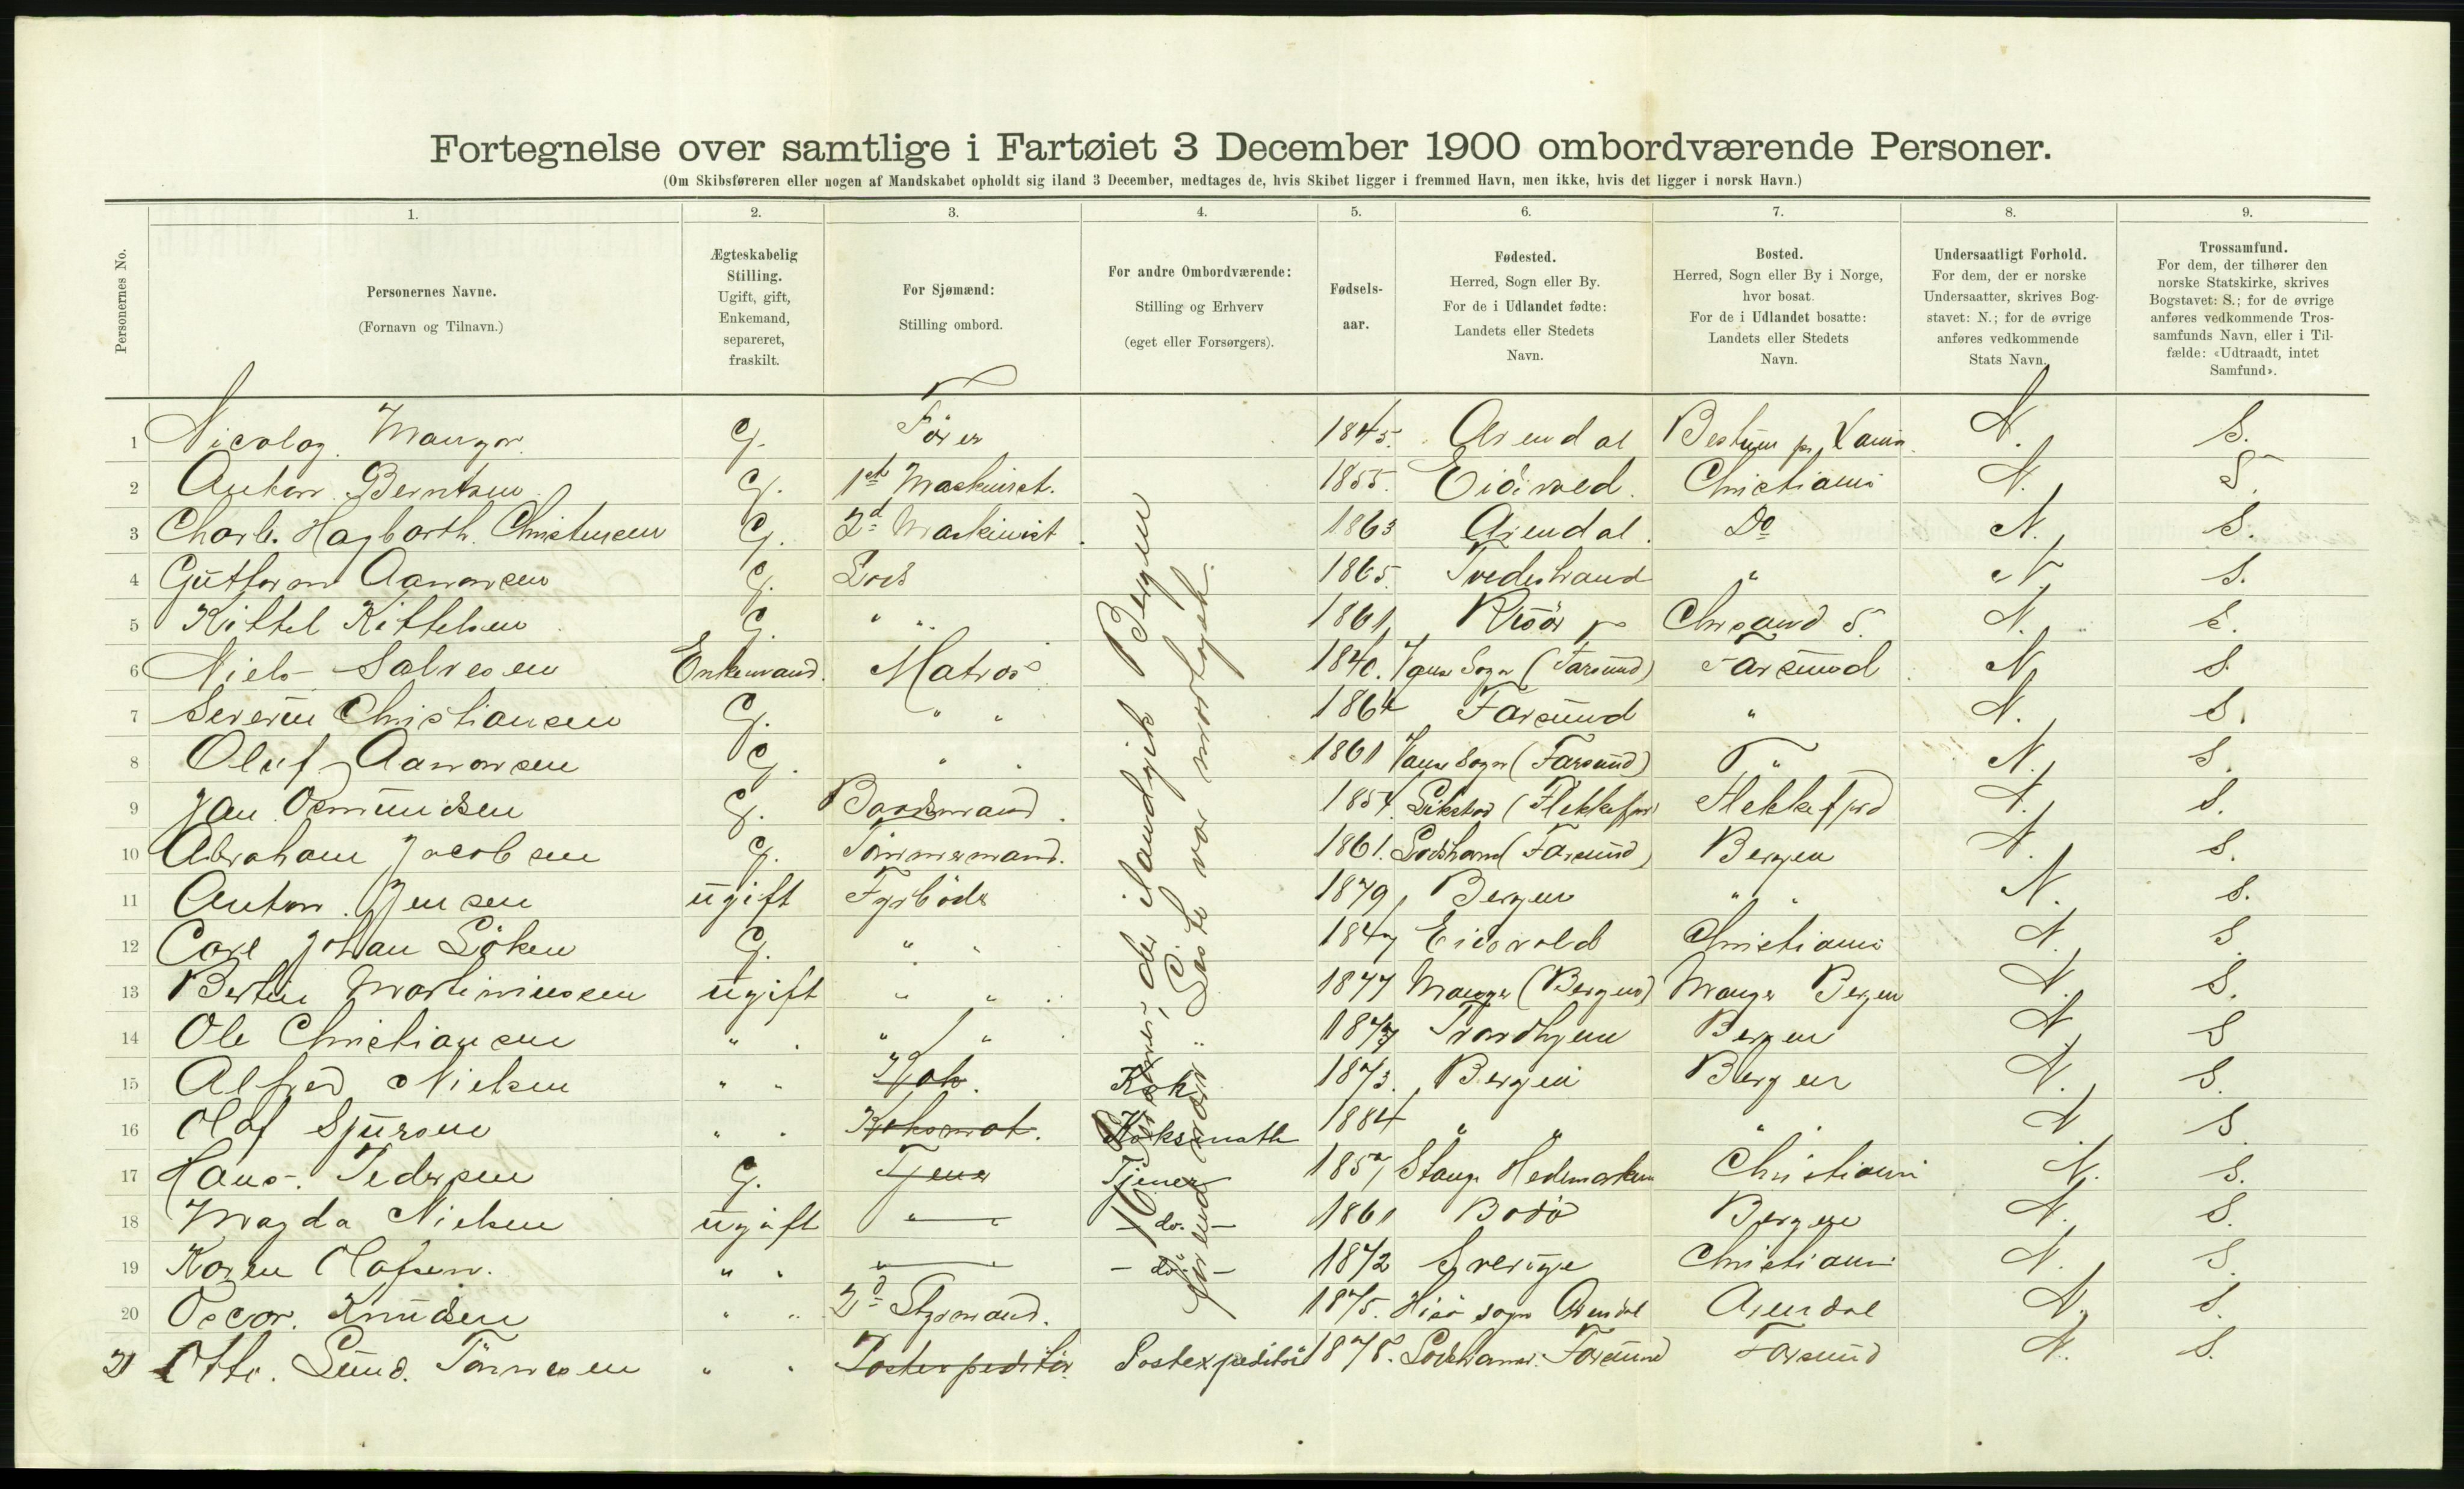 Fortegnelse over samtlige i Fartøiet 3 December 1900 ombordværende Personer.
(Om Skibsføreren eller nogen af Mandskabet opholdt sig iland 3 December, medtages de, hvis Skibet ligger i fremmed Havn, men ikke, hvis det ligger i norsk Havn.)
1. 2. 3. 4. 5. 6. 7. 8. 9.
Personernes No.
Personernes Navne.
(Fornavn og Tilnavn.)
Ægteskabelig
Stilling.
Ugift, gift,
Enkemand,
separeret,
fraskilt.
For Sjømænd:
Stilling ombord.
For andre Ombordværende:
Stilling og Erhverv
(eget eller Forsørgers).
Fødsels-
aar.
Fødested.
Herred, Sogn eller By.
For de i Udlandet fødte:
Landets eller Stedets
Navn.
Bosted.
Herred, Sogn eller By i Norge,
hvor bosat.
For de i Udlandet bosatte:
Landets eller Stedets
Navn.
Undersaatligt Forhold.
For dem, der er norske
Undersaatter, skrives Bog-
stavet: N.; for de øvrige
anføres vedkommende
Stats Navn.
Trossamfund.
For dem, der tilhører den
norske Statskirke, skrives
Bogstavet: S.; for de øvrige
anføres vedkommende Tros-
samfunds Navn, eller i Til-
fælde: «Udtraadt, intet
Samfund».
1 Nicolay Mangor G. Fører 1845. Arendal Bestum pr Xania N. S.
2 Anton Berntsen G. 1ste Maskinist. 1855. Eidsvold. Christiania N. S.
3 Charls. Hagbarth. Christensen G. 2d Maskinist 1863 Arendal. Do N. S.
4 Guttorm Aanonsen G. Lods 1865. Tvedestrand " N. S.
5 Kittel Kittelsen G. " " 1861 Risør Chrsand S. N. S.
6 Niels Salvesen Enkemand. Matros 1840. Vanse Sogn (Farsund) Farsund N. S.
7 Severin Christiansen G. " " 1864 Farsund " N. S.
8 Oluf Aanonsen G. " " 1861 Vanse Sogn (Farsund) " N. S.
9 Jan Osmundsen G. Baadsmand. 1854. (Flekkefjord) Flekkefjord N. S.
10 Abraham Jacobsen G. Tømmermand. 1861. Lodshavn (Farsund) Bergen N. S.
11 Anton Jensen ugift Fyrbøder 1879 Bergen " " N. S.
12 Carl Johan Løken G. " " 1847 Eidsvold Christiania N. S.
13 Bertin Martiniussen ugift " " 1877 Manger (Bergen) Manger Bergen N. S.
14 Ole Christiansen " " " " 1873 Trondhjem Bergen N. S.
15 Alfred Nielsen " " Kok. Kok 1873. Bergen Bergen N. S.
16 Olaf Sjursen " " Koksmat. Koksmath 1884 " " " " N S.
17 Hans. Pedersen G. Tjener Tjener Stange Hedemarken Christiania N. S.
18 Magda Nielsen ugift " — do. — 1860 Bodø Bergen N. S.
19 Karen Olafsen. " " " — do. — 1872 Sverige Christiania N. S.
20 Oscar. Knudsen " " 2d Styrmand. 1875. Hisø sogn Arendal Arendal N. S.
21 Otto. Lund. Tønnesen " " Postexpeditør Postexpeditør 1878. Lodshavn. Farsund Farsund N. S.
der ilandgik Bergen
Liste var mottaget.